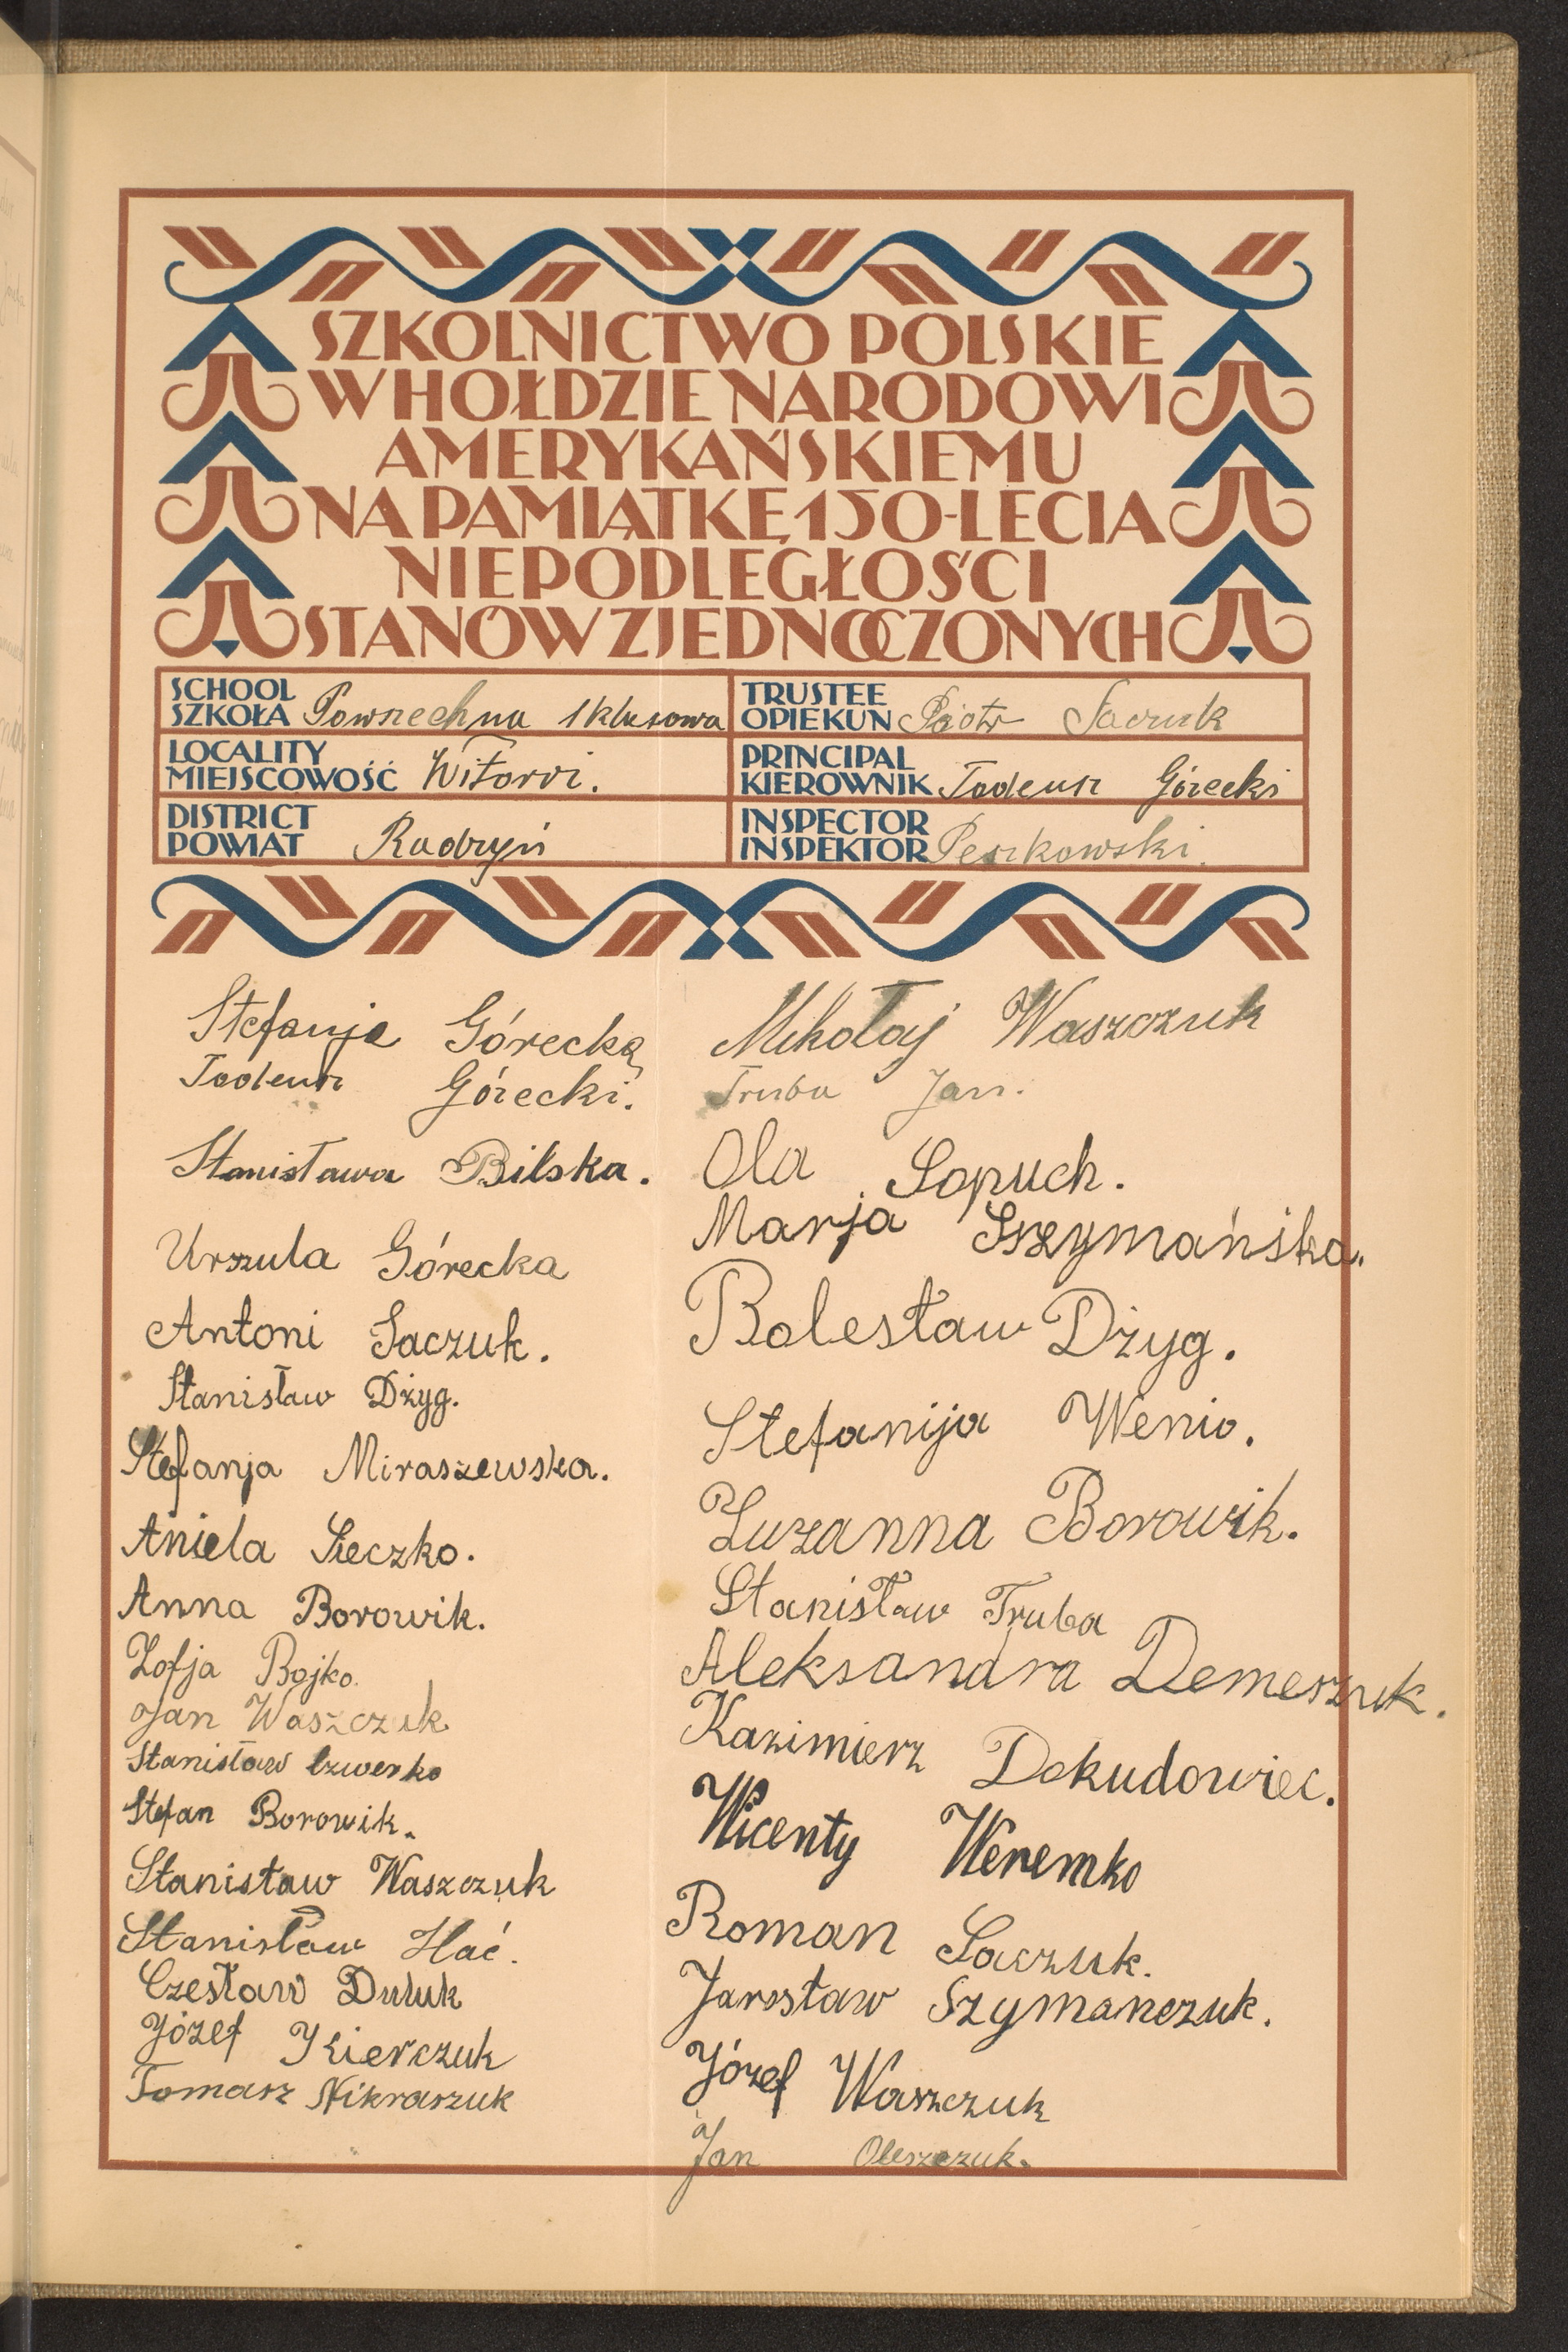 SZKOLNICTWO POLSKIE
W HOŁDZIE NARODOWI
AMERYKAŃSKIEMU
NA PAMIĄTKĘ 150-LECIA
NIEPODLEGŁOŚCI
STANÓW ZJEDNOCZONYCH
SCHOOL
SZKOŁA Powszechna 1 klasowa
TRUSTEE
OPIEKUN Piotr Saczuk
LOCALITY
MIEJSCOWOŚĆ Witoroż.
PRINCIPAL
KIEROWNIK Tadeusz Górecki
DISTRICT
POWIAT Radzyń
INSPECTOR
INSPEKTOR Peszkowski.
Stefanja Górecka
Tadeusz Górecki.
Stanisława Bilska.
Urszula Górecka
Antoni Saczuk.
Stanisław Dżyg.
Stefanja Miraszewska.
Aniela Sieczko.
Anna Borowik.
Zofja Bojko.
Jan Waszczuk
Stanisław
Stefan Borowik.
Stanisław Waszczuk
Stanisław Hać.
Czesław Duluk
Józef Kierczuk
Tomasz Nikraszuk
Mikołaj Waszczuk
Truba Jan.
Ola Sopuch.
Marja Szymańska.
Bolesław Dżyg.
Stefanija Wenio.
Zuzanna Borowik.
Stanisław Truba
Aleksandra Demeszuk.
Kazimierz Dokudowiec.
Wicenty Weremko
Roman Saczuk.
Jarosław Szymanczuk.
Józef Waszczuk
Jan Oleszczuk.